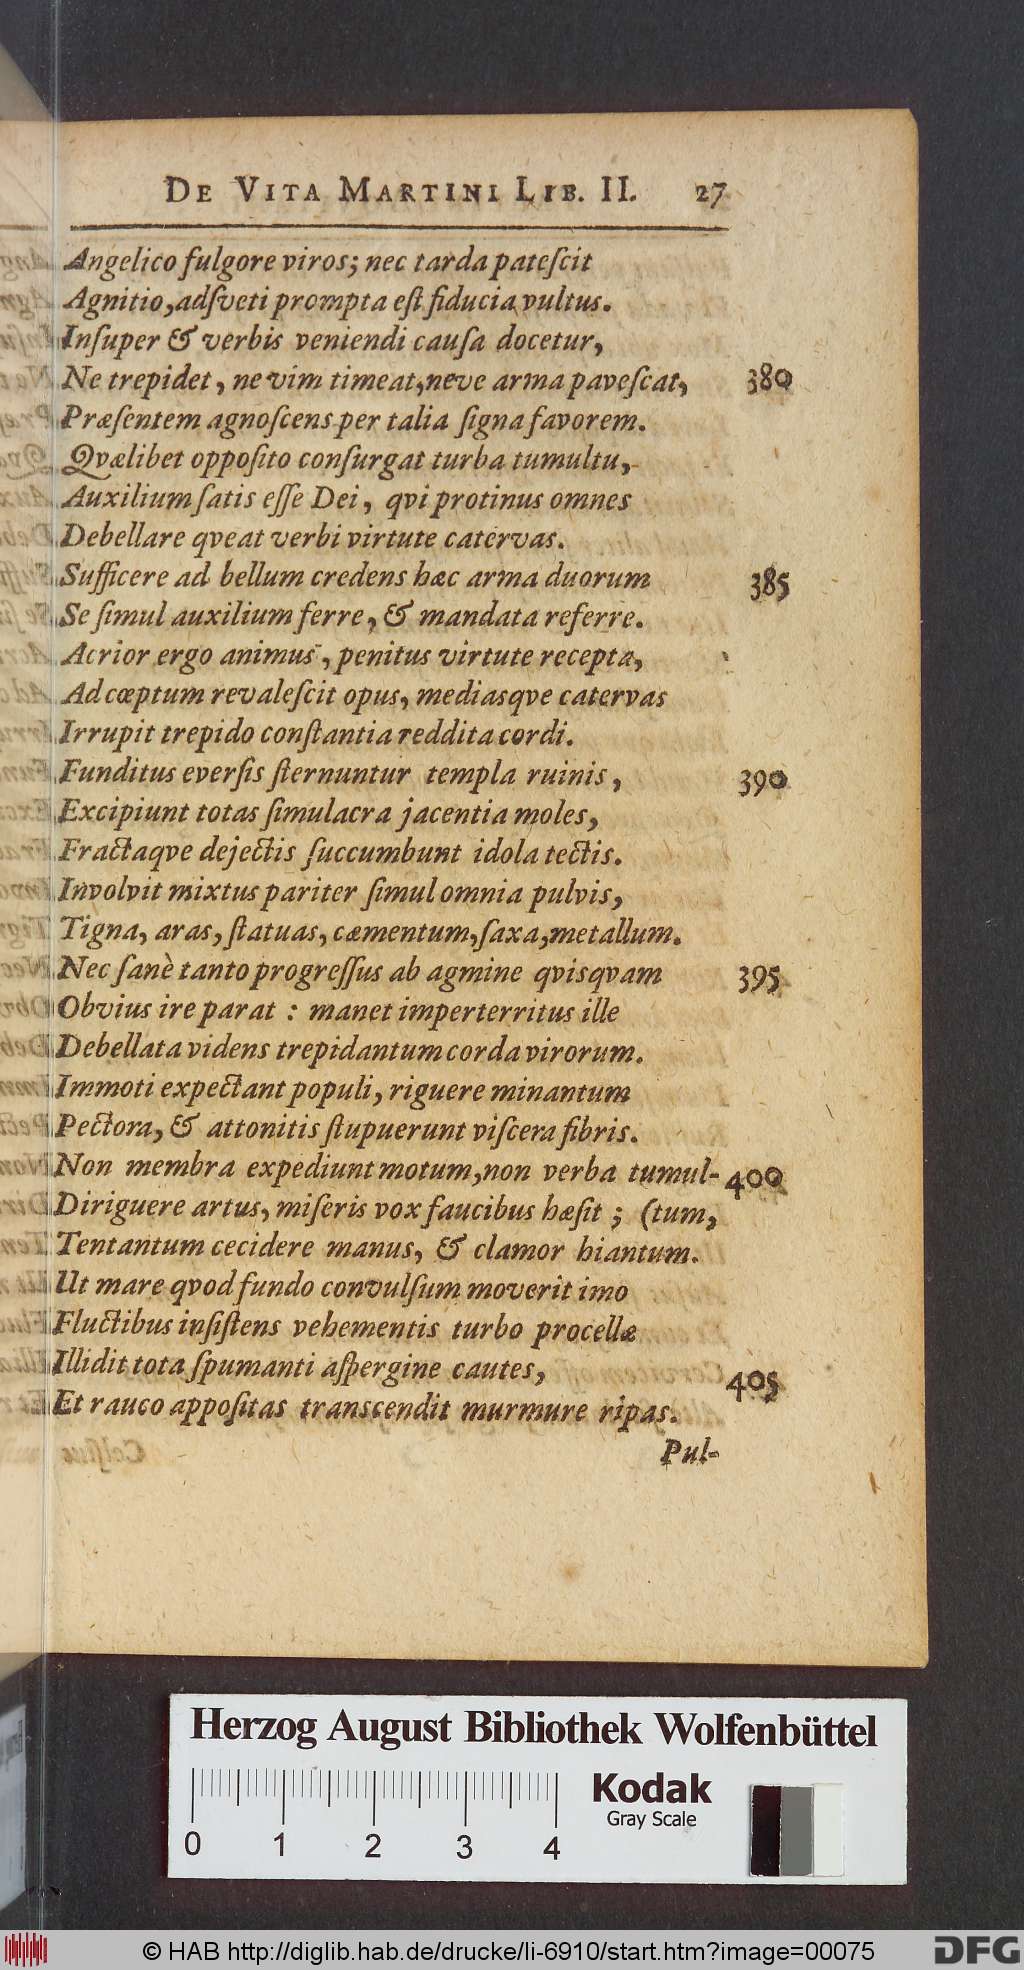 DE VITA MARTINI LIB. II. 27
Angelico fulgore viros; nec tarda pateſcit
Agnitio, adſveti prompta eſt fiducia vultus.
Inſuper & verbis veniendi cauſa docetur,
Ne trepidet, ne vim timeat, neve arma paveſcat, 380
Præſentem agnoſcens per talia ſigna favorem.
Qvælibet oppoſito conſurgat turba tumultu,
Auxilium ſatis eſſe Dei, qvi protinus omnes
Debellare qveat verbi virtute catervas.
Sufficere ad bellum credens hæc arma duorum 385
Se ſimul auxilium ferre, & mandata referre.
Acrior ergo animus, penitus virtute recepta,
Ad cœptum revaleſcit opus, mediasqve catervas
Irrupit trepido conſtantia reddita cordi.
Funditus everſis ſternuntur templa ruinis, 390
Excipiunt totas ſimulacra jacentia moles,
Fractaqve dejectis ſuccumbunt idola tectis.
Involvit mixtus pariter ſimul omnia pulvis,
Tigna, aras, ſtatuas, cæmentum, ſaxa, metallum.
Nec ſanè tanto progreſſus ab agmine qvisqvam 395
Obvius ire parat : manet imperterritus ille
Debellata videns trepidantum corda virorum.
Immoti expectant populi, riguere minantum
Pectora, & attonitis ſtupuerunt viſcera fibris.
Non membra expediunt motum, non verba tumul- 400
Diriguere artus, miſeris vox faucibus hæſit ; (tum,
Tentantum cecidere manus, & clamor hiantum.
Ut mare qvod fundo convulſum moverit imo
Fluctibus inſiſtens vehementis turbo procellæ
Illidit tota ſpumanti aſpergine cautes, 405
Et rauco appoſitas transcendit murmure ripas.
Pul-
Herzog August Bibliothek Wolfenbüttel
Kodak
Gray Scale
0 1 2 3 4
© HAB http://diglib.hab.de/drucke/li-6910/start.htm?image=00075
DFG